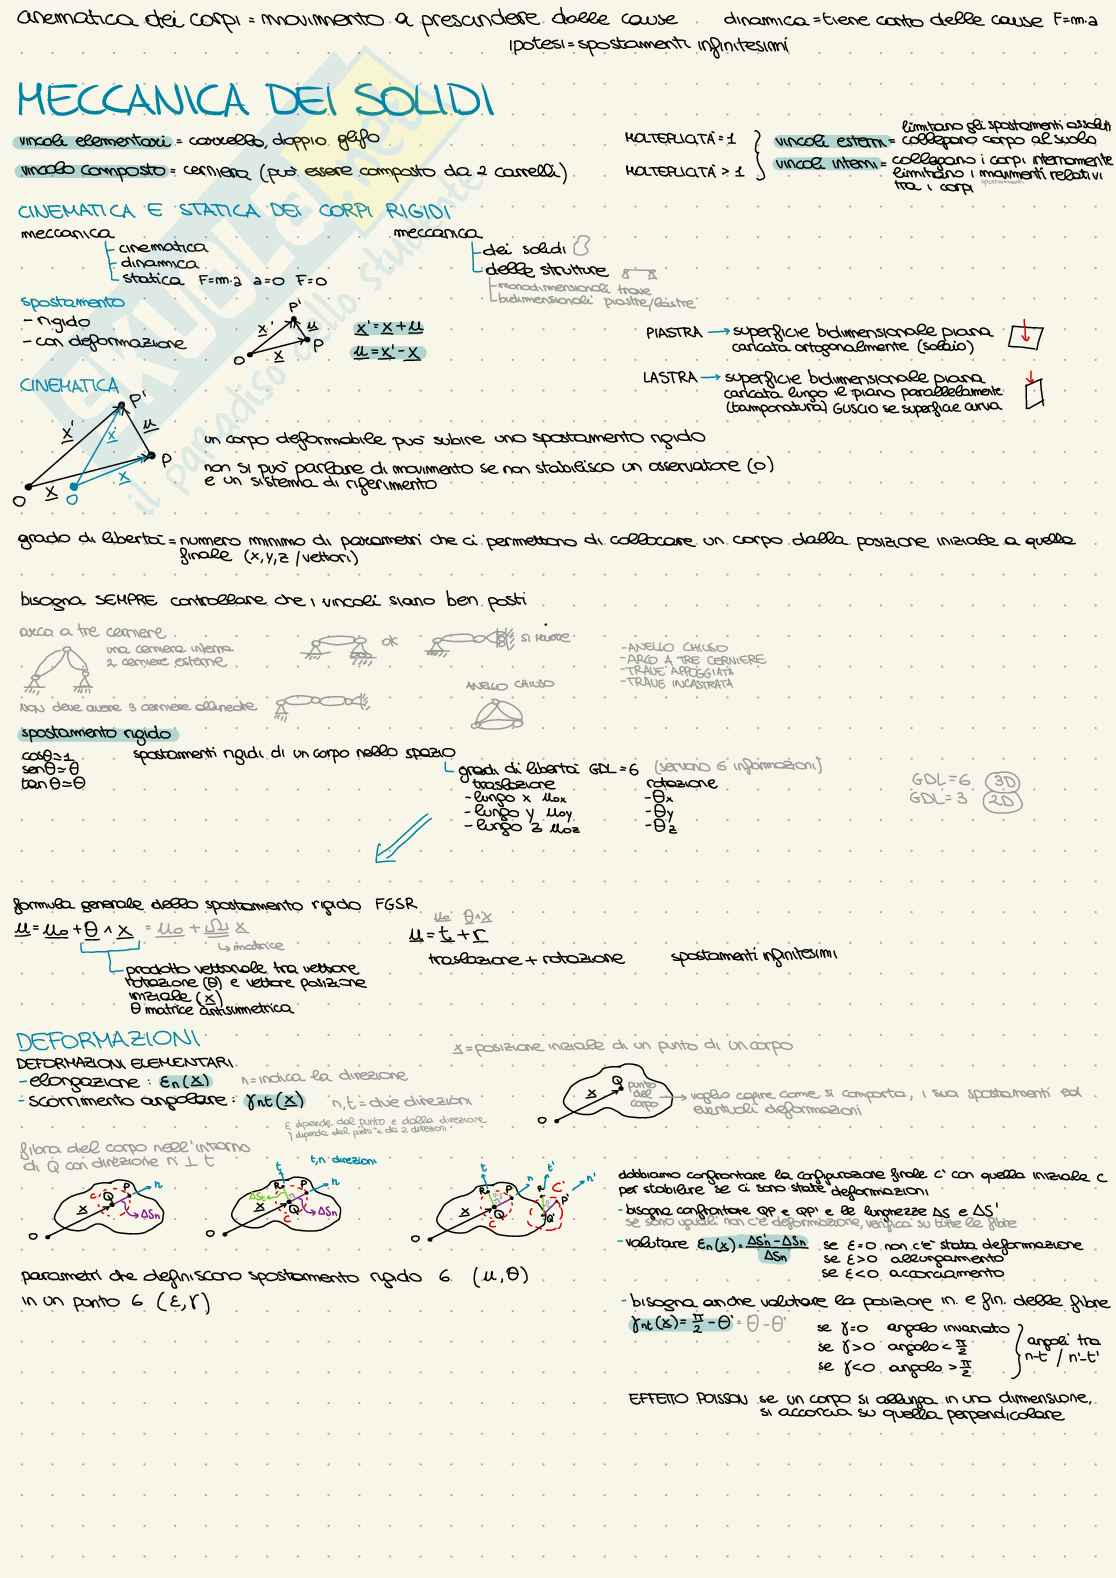 cinematica dei corpi = movimento a prescindere dalle cause dinamica = tiene conto delle cause F=m·a
ipotesi = spostamenti infinitesimi
MECCANICA DEI SOLIDI
vincoli elementari = carrello, doppio glifo MOLTEPLICITÀ = 1
vincolo composto = cerniera (può essere composto da 2 carrelli) MOLTEPLICITÀ > 1
limitano gli spostamenti assoluti
vincoli esterni = collegano corpo al suolo
vincoli interni = collegano i corpi internamente
limitano i movimenti relativi
tra i corpi
CINEMATICA E STATICA DEI CORPI RIGIDI
meccanica
cinematica
dinamica
statica F=m·a a=0 F=0
meccanica
dei solidi
delle strutture
monodimensionali trave
bidimensionali piastre/lastre
spostamento
- rigido
- con deformazione
P'
x' u
x P
O
x' = x + u
u = x' - x
PIASTRA → superficie bidimensionale piana
caricata ortogonalmente (solaio)
LASTRA → superficie bidimensionale piana
caricata lungo il piano parallelamente
(tamponatura) GUSCIO se superficie curva
CINEMATICA
P'
x' x' u
P
x x
O O
un corpo deformabile può subire uno spostamento rigido
non si può parlare di movimento se non stabilisco un osservatore (O)
e un sistema di riferimento
grado di libertà = numero minimo di parametri che ci permettono di collocare un corpo dalla posizione iniziale a quella
finale (x,y,z / vettori)
bisogna SEMPRE controllare che i vincoli siano ben posti
arco a tre cerniere
una cerniera interna
2 cerniere esterne
ok
si muove
- ANELLO CHIUSO
- ARCO A TRE CERNIERE
- TRAVE APPOGGIATA
- TRAVE INCASTRATA
NON deve avere 3 cerniere allineate
ANELLO CHIUSO
spostamento rigido
cosθ≃1
senθ≃θ
tanθ≃θ
spostamenti rigidi di un corpo nello spazio
gradi di libertà GDL = 6 (servono 6 informazioni)
traslazione rotazione
- lungo x uox - θx
- lungo y uoy - θy
- lungo z uoz - θz
GDL = 6 3D
GDL = 3 2D
formula generale dello spostamento rigido FGSR
u = uo + θ ∧ x = uo + Ω x
matrice
prodotto vettoriale tra vettore
rotazione (θ) e vettore posizione
iniziale (x)
θ matrice antisimmetrica
uo θ∧x
u = t + r
traslazione + rotazione spostamenti infinitesimi
DEFORMAZIONI
DEFORMAZIONI ELEMENTARI
- elongazione : εn (x) n = indica la direzione
- scorrimento angolare : γnt (x) n,t = due direzioni
ε dipende dal punto e dalla direzione
γ dipende dal punto e da 2 direzioni
x = posizione iniziale di un punto di un corpo
Q
x
O
punto
del
corpo
voglio capire come si comporta, i suoi spostamenti ed
eventuali deformazioni
fibra del corpo nell'intorno
di Q con direzione n ⊥ t
t,n direzioni
C P n
x Q ΔSn
O
t R P n
ΔSt Q ΔSn
x C
O
t R P n
x Q C
O
t' R' C' P' n'
Q'
dobbiamo confrontare la configurazione finale C' con quella iniziale C
per stabilire se ci sono state deformazioni
- bisogna confrontare QP e QP' e le lunghezze ΔS e ΔS'
se sono uguali non c'è deformazione, verifica su tutte le fibre
- valutare εn(x) = ΔS'n - ΔSn / ΔSn
se ε=0 non c'è stata deformazione
se ε>0 allungamento
se ε<0 accorciamento
parametri che definiscono spostamento rigido 6 (u, θ)
in un punto 6 (ε, γ)
- bisogna anche valutare la posizione in. e fin. delle fibre
γnt (x) = π/2 - θ' = θ - θ'
se γ=0 angolo invariato
se γ>0 angolo < π/2
se γ<0 angolo > π/2
angoli tra
n-t / n'-t'
EFFETTO POISSON se un corpo si allunga in una dimensione,
si accorcia su quella perpendicolare